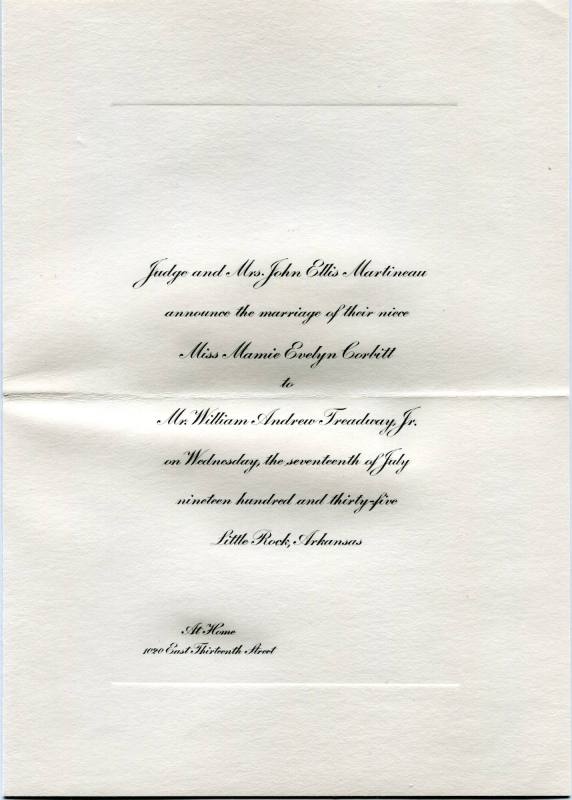 Judge and Mrs. John Ellis Martineau
announce the marriage of their niece
Miss Mamie Evelyn Corbitt
to
Mr. William Andrew Treadway, Jr.
on Wednesday, the seventeenth of July
nineteen hundred and thirty-five
Little Rock, Arkansas
At Home
1020 East Thirteenth Street